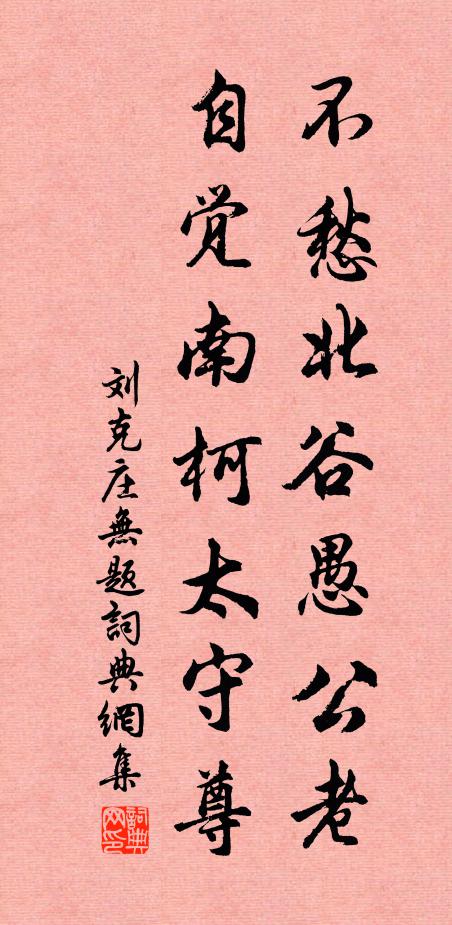 不愁北谷愚公老
自觉南柯太守尊
刘克庄無题詞典網集
詞典网印